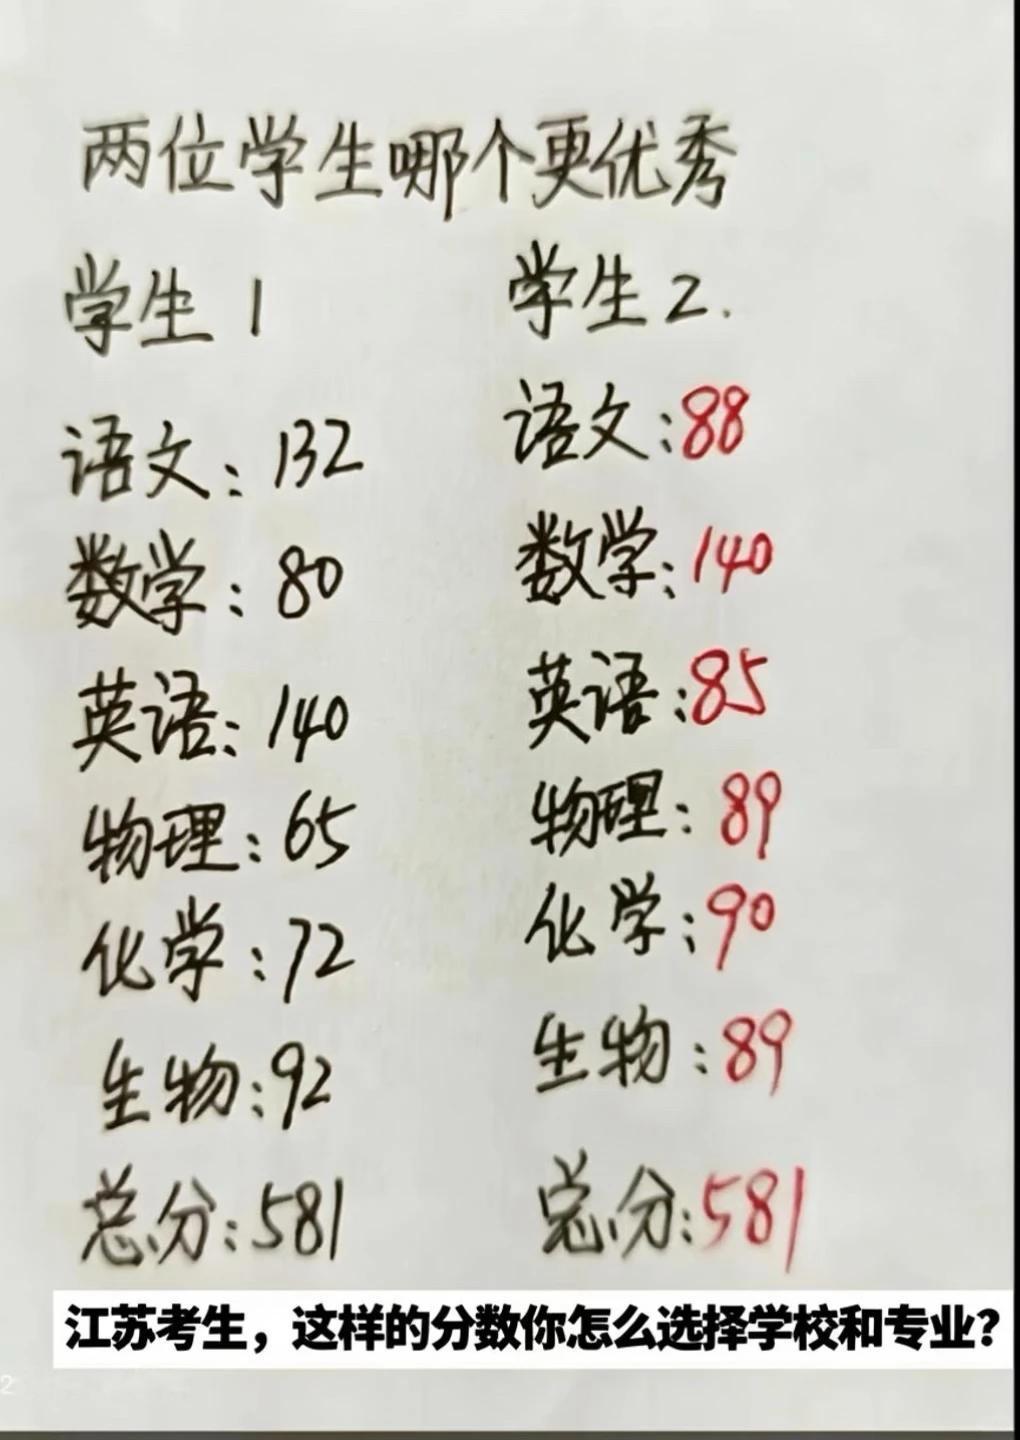 两位学生哪个更优秀
学生1
语文:132
数学:80
英语:140
物理:65
化学:72
生物:92
总分:581
学生2.
语文:88
数学:140
英语:85
物理:89
化学:90
生物:89
总分:581
江苏考生，这样的分数你怎么选择学校和专业？
2